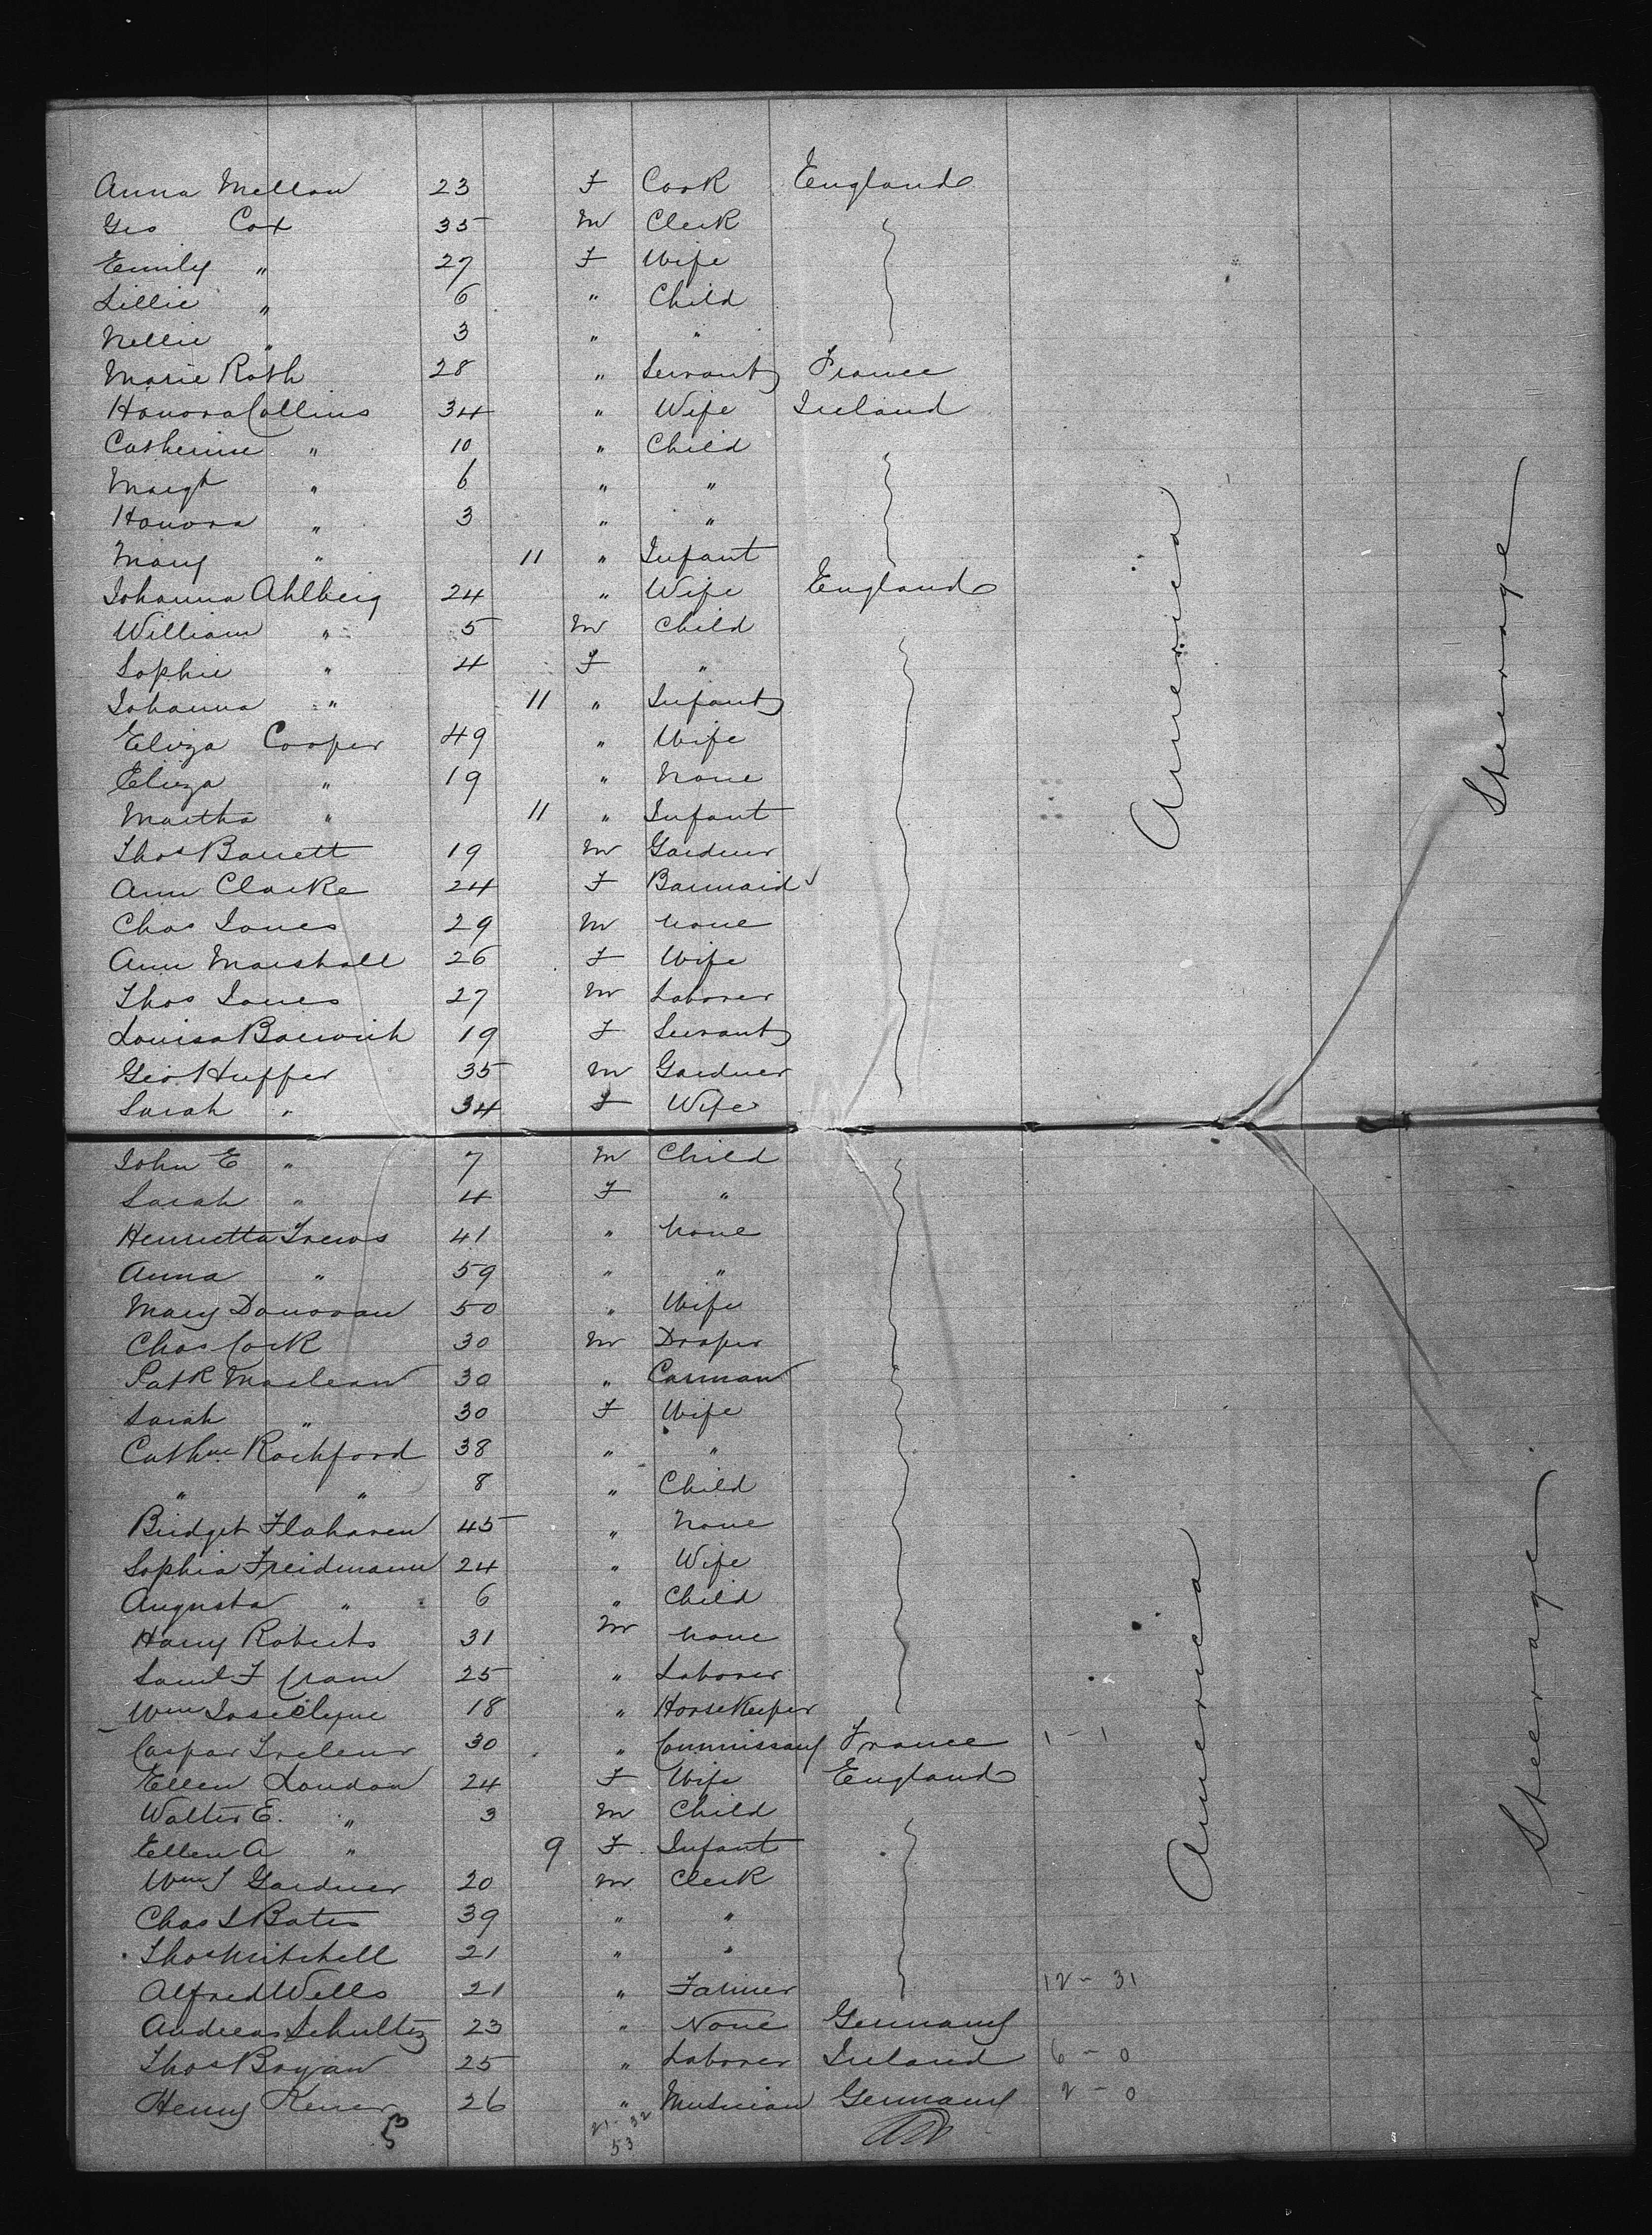 Anna Mellon 23 F Cook England
Geo Cox 35 M Clerk
Emily " 27 F Wife
Lillie " 6 " Child
Nellie " 3 " "
Marie Roth 28 " Servant France
Honora Collins 34 " Wife Ireland
Catherine " 10 " Child
Margt " 6 " "
Honora " 3 " "
Mary " 11 " Infant
Johanna Ahlberg 24 " Wife England
William " 5 M Child
Sophie " 4 F "
Johanna " 11 " Infant
Eliza Cooper 49 " Wife
Eliza " 19 " None
Martha " 11 " Infant
Thos Barrett 19 M Gardner
Ann Clarke 24 F Barmaid
Chas Jones 29 M None
Ann Marshall 26 F Wife
Thos Jones 27 M Laborer
Louisa Barwick 19 F Servant
Geo. Huffer 35 M Gardner
Sarah " 34 F Wife
America
Steerage
John E " 7 M Child
Sarah " 4 F "
Henrietta Trews 41 " None
Anna " 59 " "
Mary Donovan 50 " Wife
Chas Cork 30 M Draper
Patk Maclean 30 " Carman
Sarah " 30 F Wife
Cathne Rochford 38 " "
" " 8 " Child
Bridget Flahaven 45 " None
Sophia Freidmann 24 " Wife
Augusta " 6 " Child
Harry Roberts 31 M None
Saml F Crane 25 " Laborer
Wm 18 " Horsekeeper
Caspar 30 " Commissary France 1 - 1
Ellen London 24 F Wife England
Walter E. " 3 M Child
Ellen A " 9 F Infant
Wm J Gardner 20 M Clerk
Chas J Bates 39 " "
Thos Mitchell 21 " "
Alfred Wells 21 " Farmer 12 - 31
Andreas Schultz 23 " None Germany
Thos Bryan 25 " Laborer Ireland 6 - 0
Henry 26 " Musician Germany 2 - 0
America
Steerage
21 - 32
53